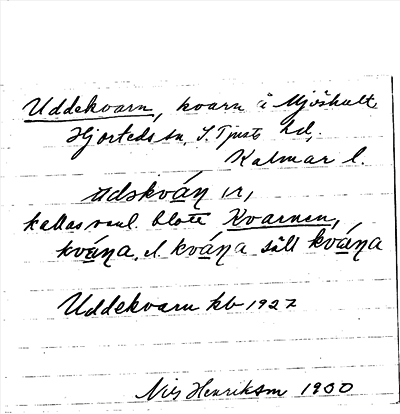 Uddekvarn, kvarn å Mjöshult,
Hjorteds sn, S. Tjusts hd,
Kalmar l.
ɯdskváɳ ɪr,
kallas vanl. blott Kvarnen,
kváɳa, el. kváɳa sält kváɳa
Uddekvarn kb 1927
Nils Henriksson 1930